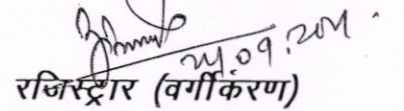 24.09.2011.
रजिस्ट्रार (वर्गीकरण)